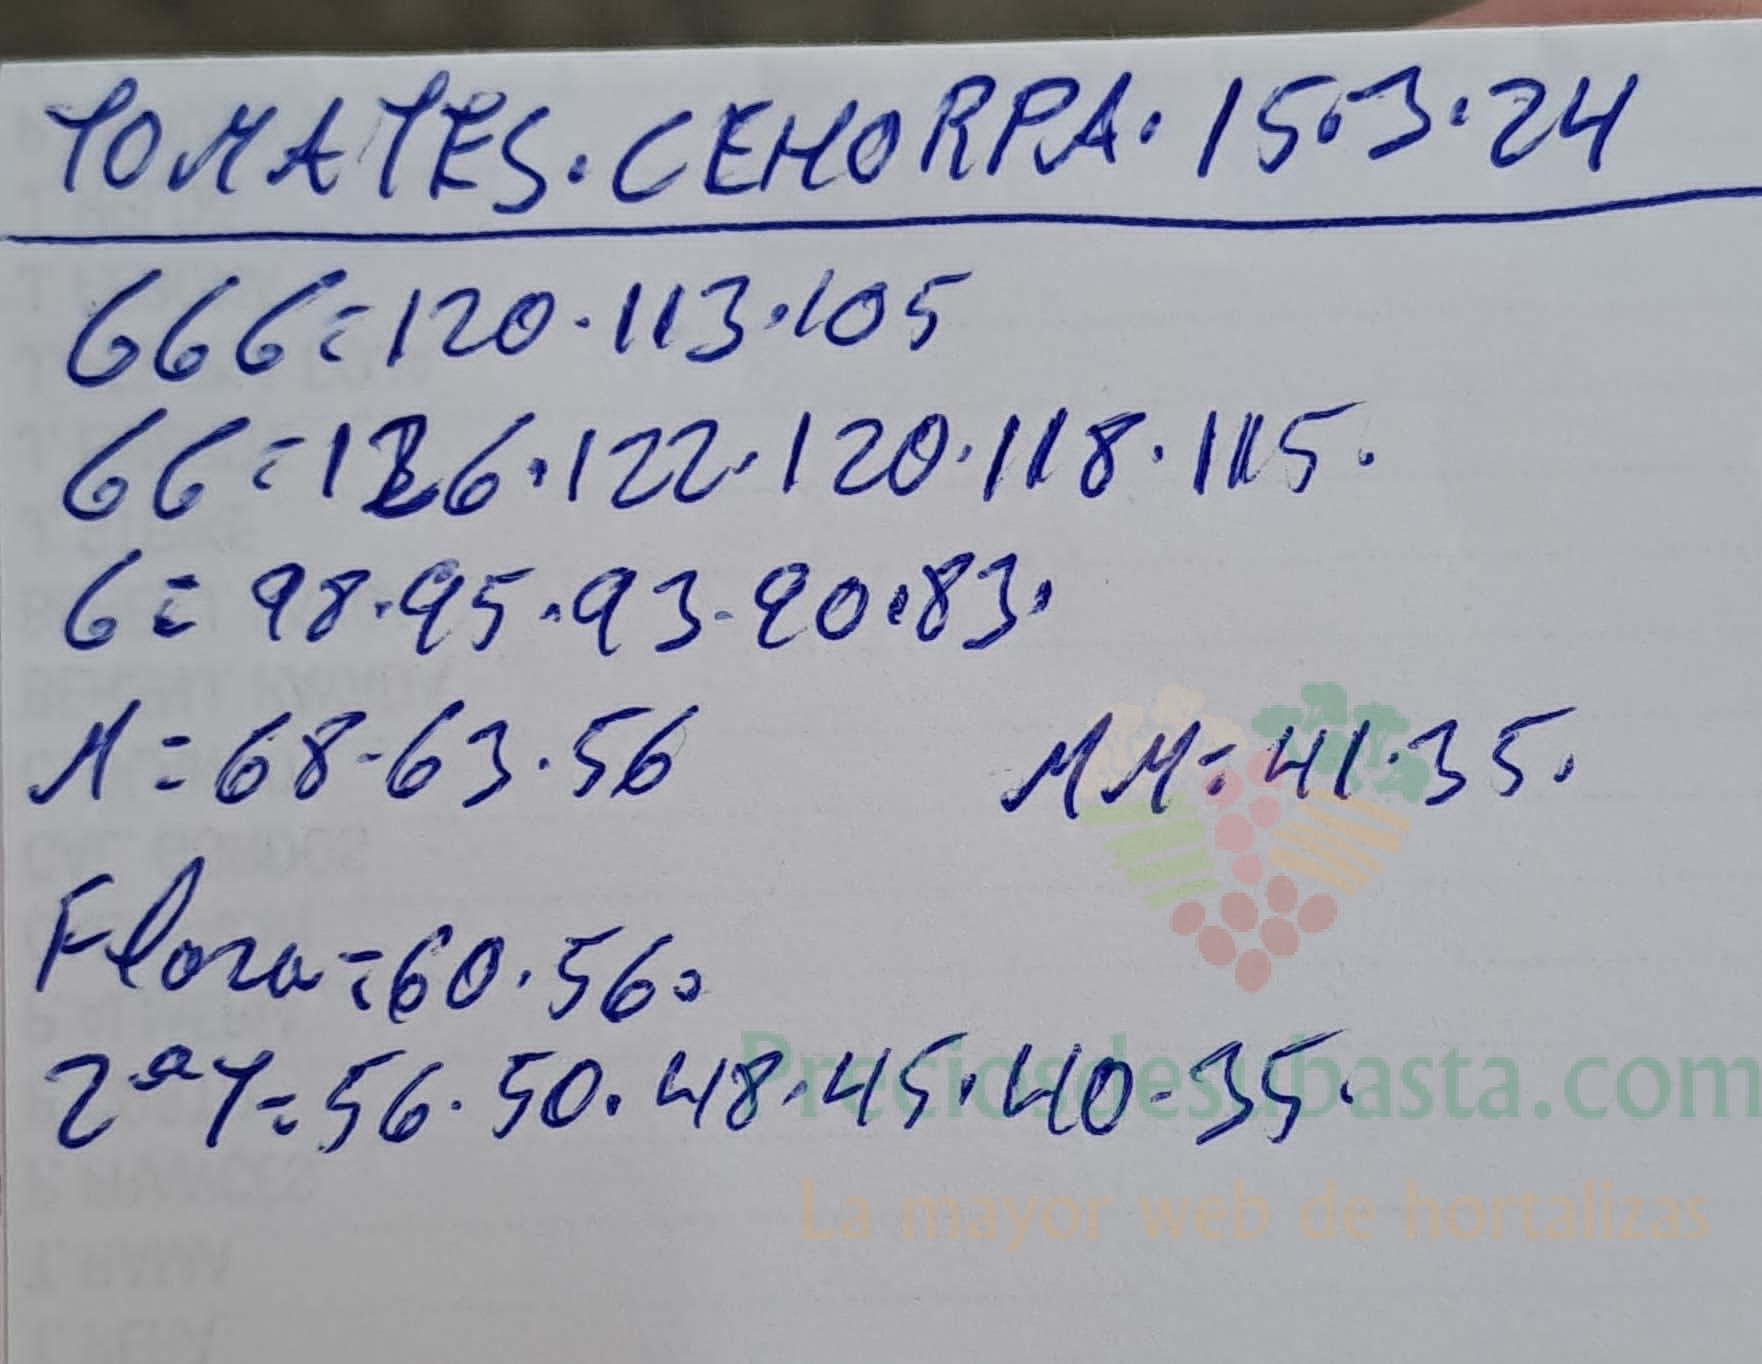 TOMATES. CEHORPA. 15.3.24
666=120.113.105
66=126.122.120.118.115.
6=98.95.93.90.83.
M=68-63.56
MM=41.35.
Flora=60.56.
2ªY=56.50.48.45.40-35.
Preciosdesubasta.com
La mayor web de hortalizas